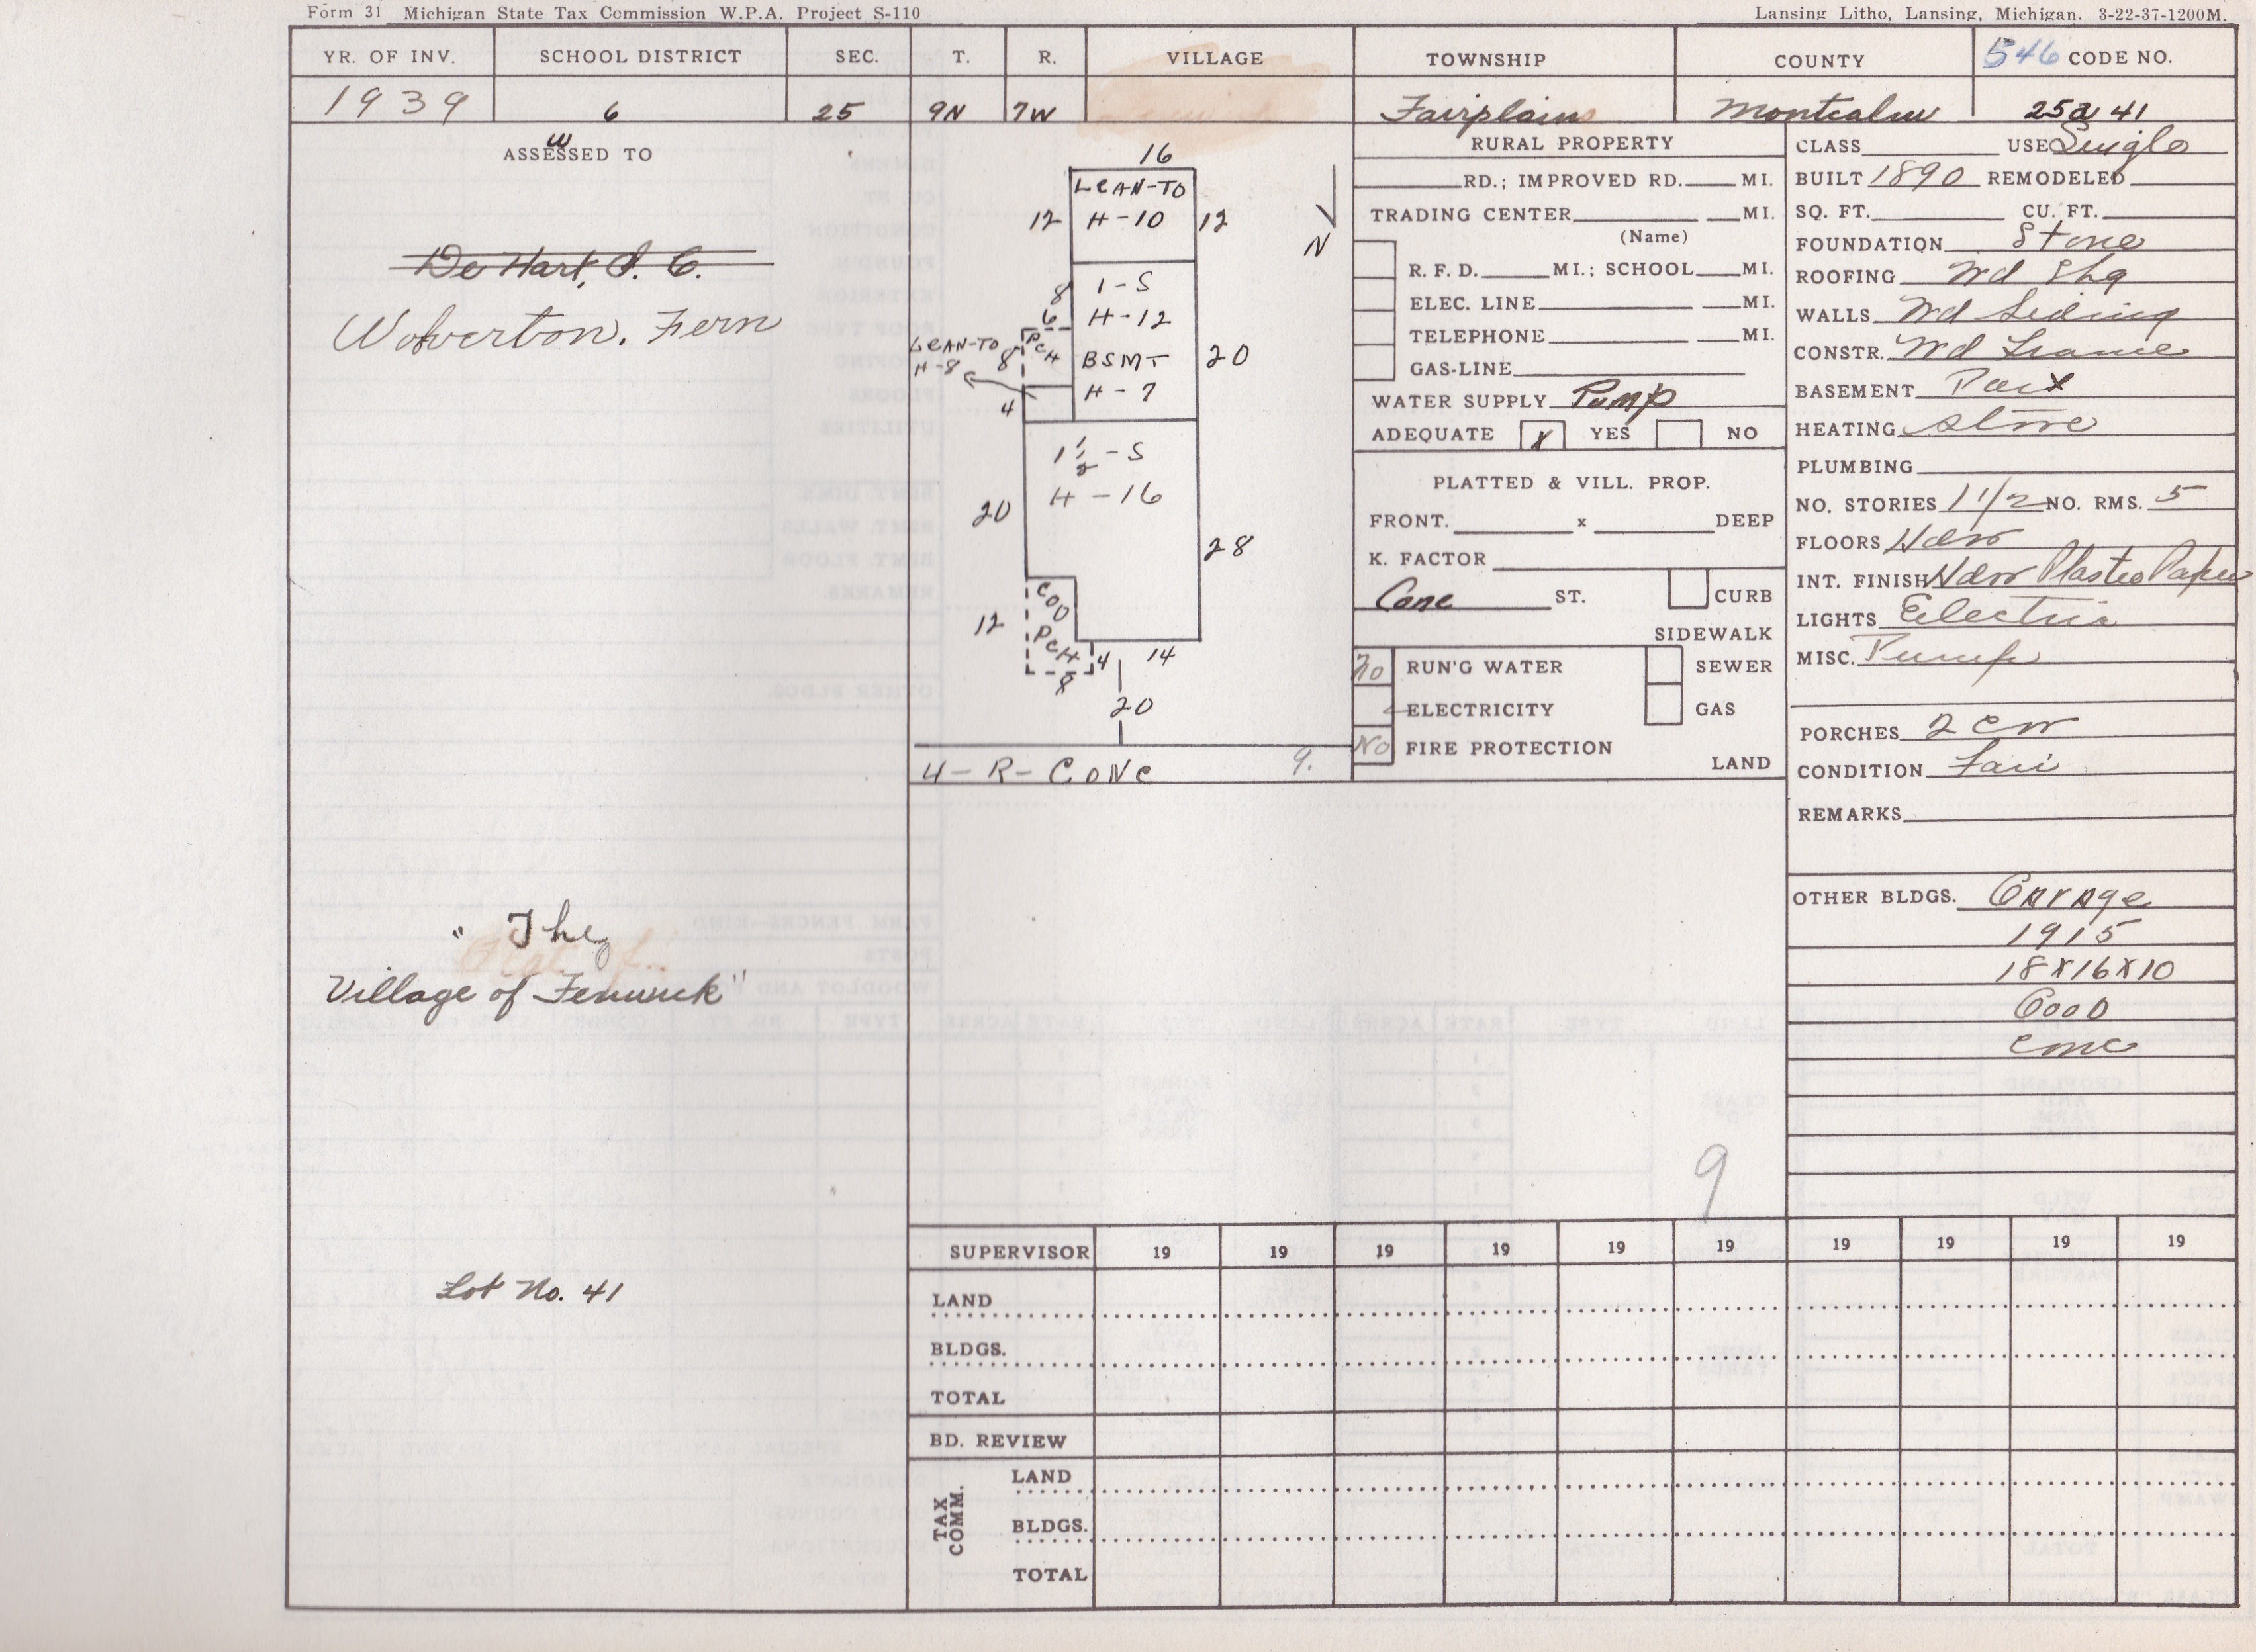 Form 31 Michigan State Tax Commission W.P.A. Project S-110
Lansing Litho, Lansing, Michigan. 3-22-37-1200M.
YR. OF INV. SCHOOL DISTRICT SEC. T. R. VILLAGE TOWNSHIP COUNTY 546 CODE NO.
1939 6 25 9N 7W Fairplains Montcalm 25a 41
ASSESSED TO
w
De Hart,
Wolverton, Fern
"The
Village of Fenwick"
Lot No. 41
16
LEAN-TO
12 H-10 12
N
1-S
8 H-12
6
LEAN-TO 8 PCH BSMT 20
H-8
4 H-7
1 1/2 -S
H-16
20
28
COD
12 PCH
4 14
8
20
U-R-CONC 9.
RURAL PROPERTY
RD.; IMPROVED RD. MI.
TRADING CENTER MI.
(Name)
R. F. D. MI.; SCHOOL MI.
ELEC. LINE MI.
TELEPHONE MI.
GAS-LINE
WATER SUPPLY Pump
ADEQUATE X YES NO
PLATTED & VILL. PROP.
FRONT. x DEEP
K. FACTOR
Conc ST. CURB
SIDEWALK
No RUN'G WATER SEWER
ELECTRICITY GAS
No FIRE PROTECTION
LAND
CLASS USE Single
BUILT 1890 REMODELED
SQ. FT. CU. FT.
FOUNDATION Stone
ROOFING Wd Shg
WALLS Wd Siding
CONSTR. Wd Frame
BASEMENT Part
HEATING Stove
PLUMBING
NO. STORIES 1 1/2 NO. RMS. 5
FLOORS Hdw
INT. FINISH Hdw Plaster Paper
LIGHTS Electric
MISC. Pump
PORCHES 2
CONDITION Fair
REMARKS
OTHER BLDGS. Garage
1915
18X16X10
Good
Conc
9
SUPERVISOR 19 19 19 19 19 19 19 19 19 19
LAND
BLDGS.
TOTAL
BD. REVIEW
TAX COMM.
LAND
BLDGS.
TOTAL